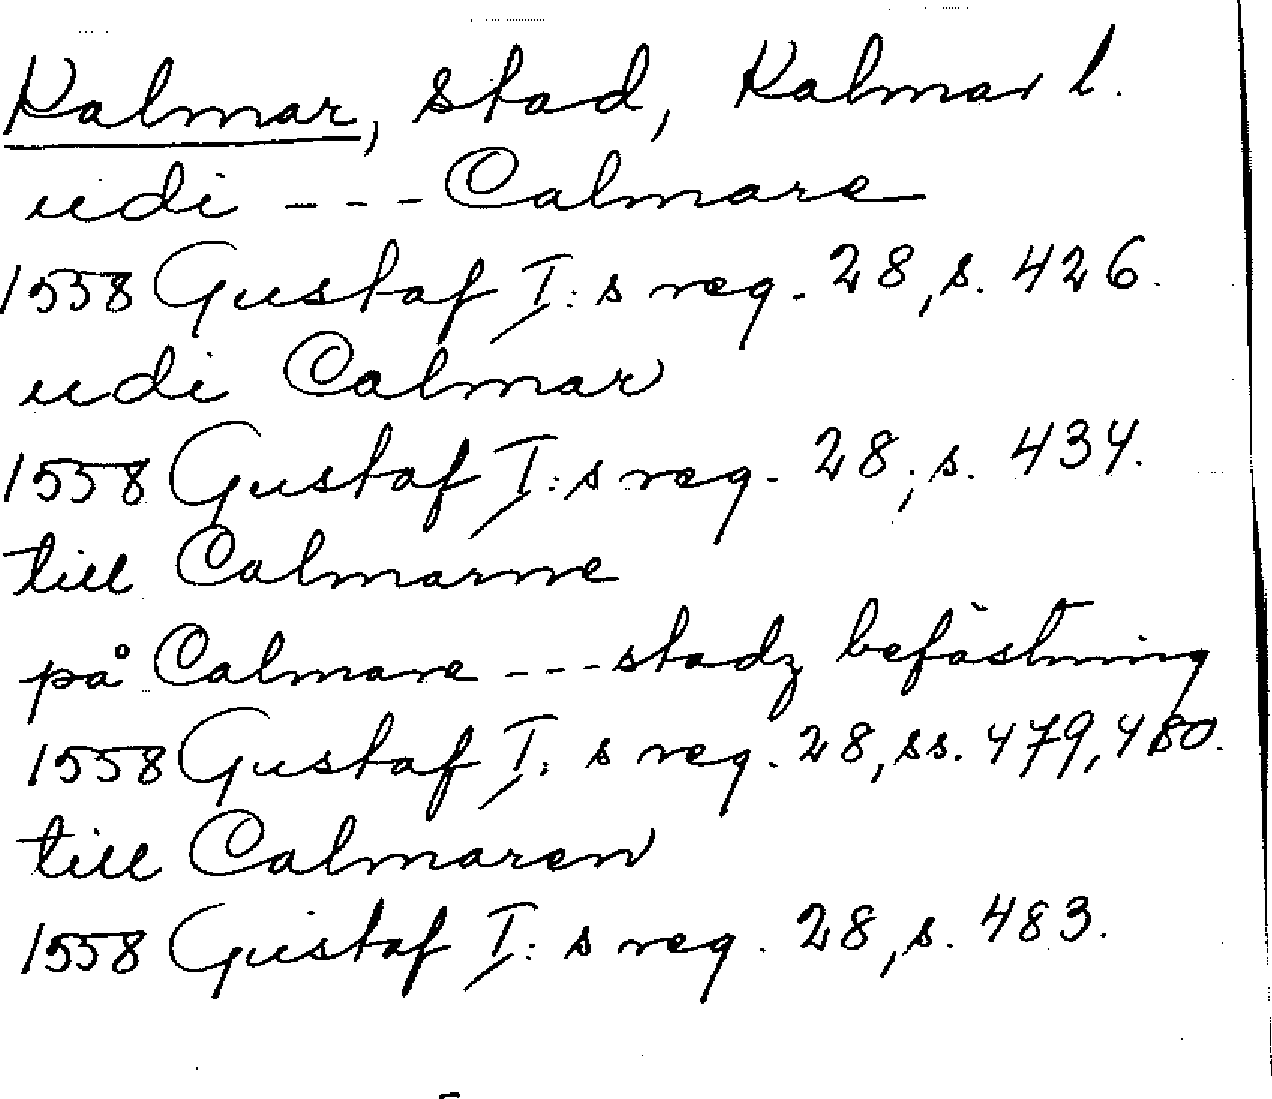 Kalmar, stad, Kalmar l.
udi --- Calmare
1558 Gustaf I:s reg. 28, s. 426.
udi Calmar
1558 Gustaf I:s reg. 28, s. 434.
till Calmarne
på Calmare --- stadz befästning
1558 Gustaf I:s reg. 28, ss. 479, 480.
till Calmaren
1558 Gustaf I:s reg. 28, s. 483.